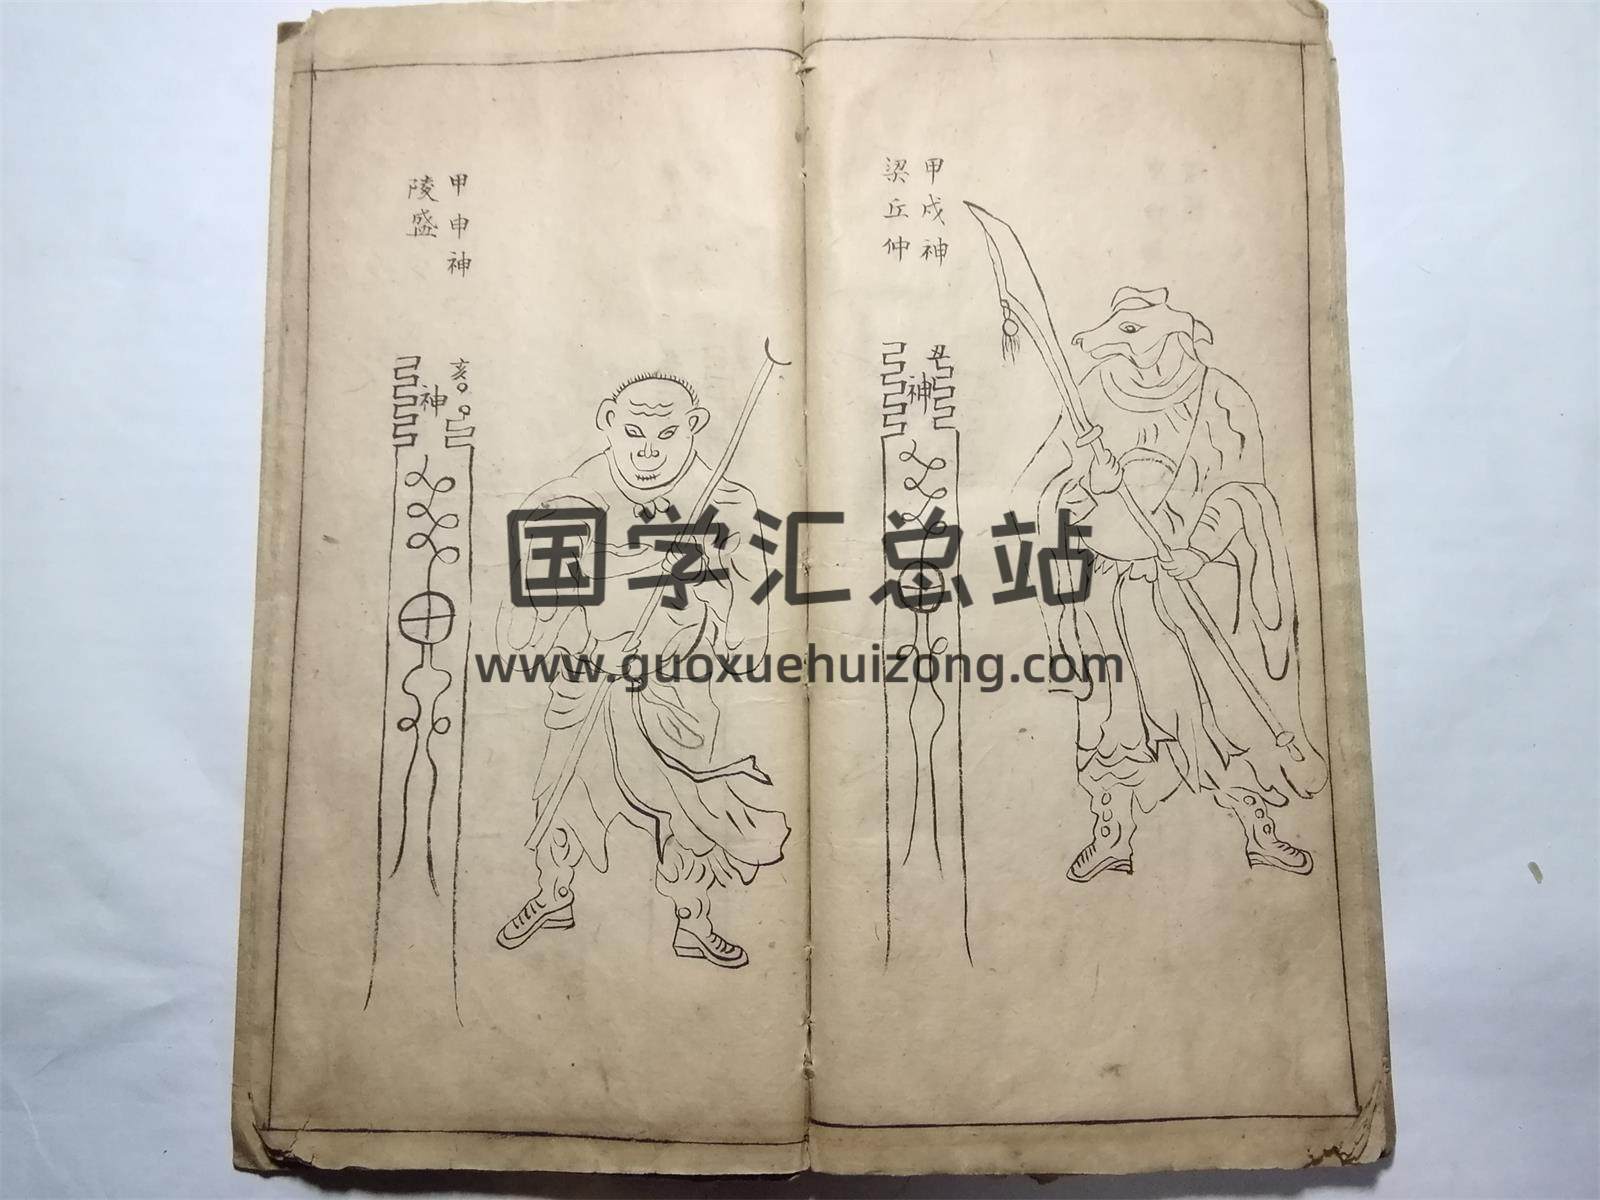 甲戌神
梁丘仲
丑
神
甲申神
陵盛
亥
神
国学汇总站
www.guoxuehuizong.com